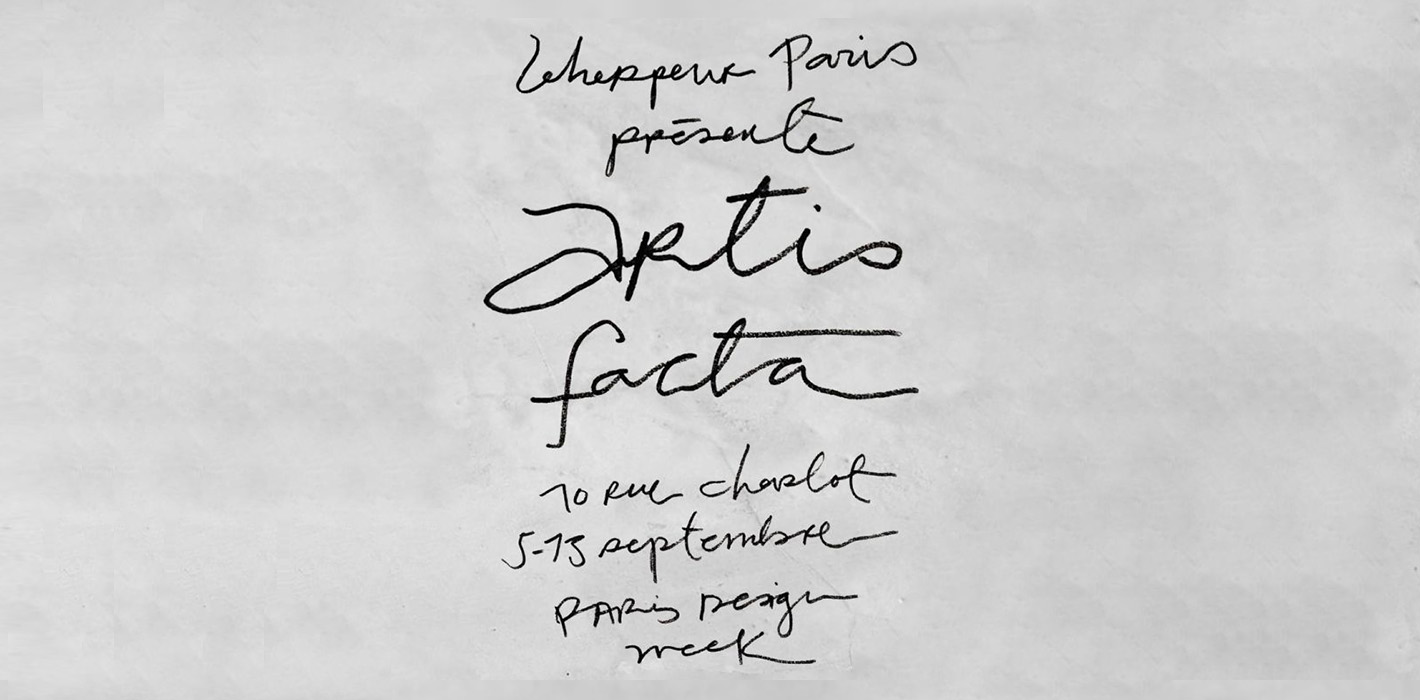 Leherpeur Paris
présente
Artis
facta
10 rue charlot
5-13 septembre
PARis Design
week